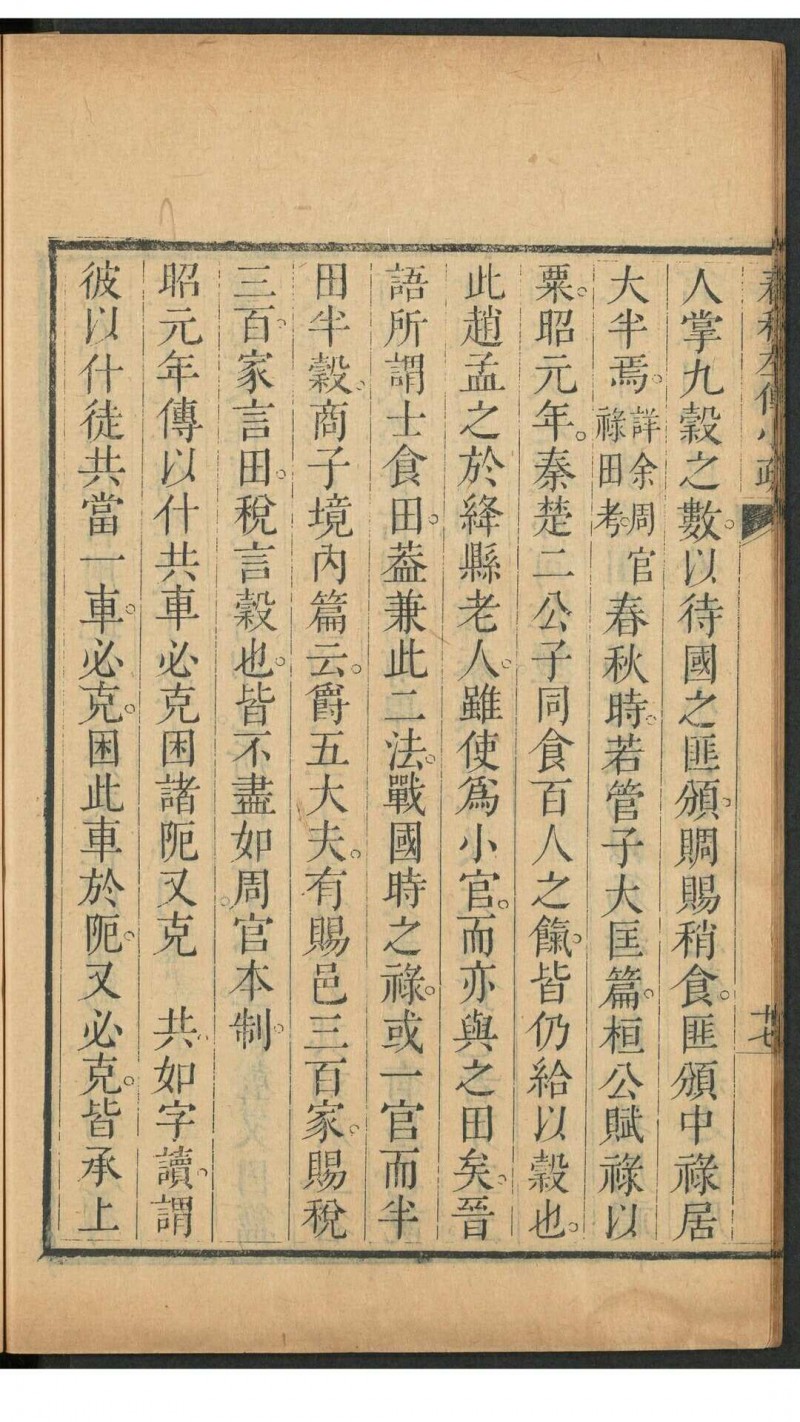 春秋左傳小疏
廿七
人掌九穀之數。以待國之匪頒。賙賜稍食。匪頒中祿居
大半焉。詳余周官祿田考。春秋時。若管子大匡篇。桓公賦祿以
粟。昭元年。秦楚二公子同食百人之餼。皆仍給以穀也。
此趙孟之於絳縣老人。雖使爲小官。而亦與之田矣。晉
語所謂士食田。葢兼此二法。戰國時之祿。或一官而半
田半穀。商子境內篇云。爵五大夫。有賜邑三百家。賜稅
三百家。言田。稅言穀也。皆不盡如周官本制。
昭元年傳以什共車必克困諸阨又克　共如字讀。謂
彼以什徒共當一車。必克。困此車於阨。又必克。皆承上